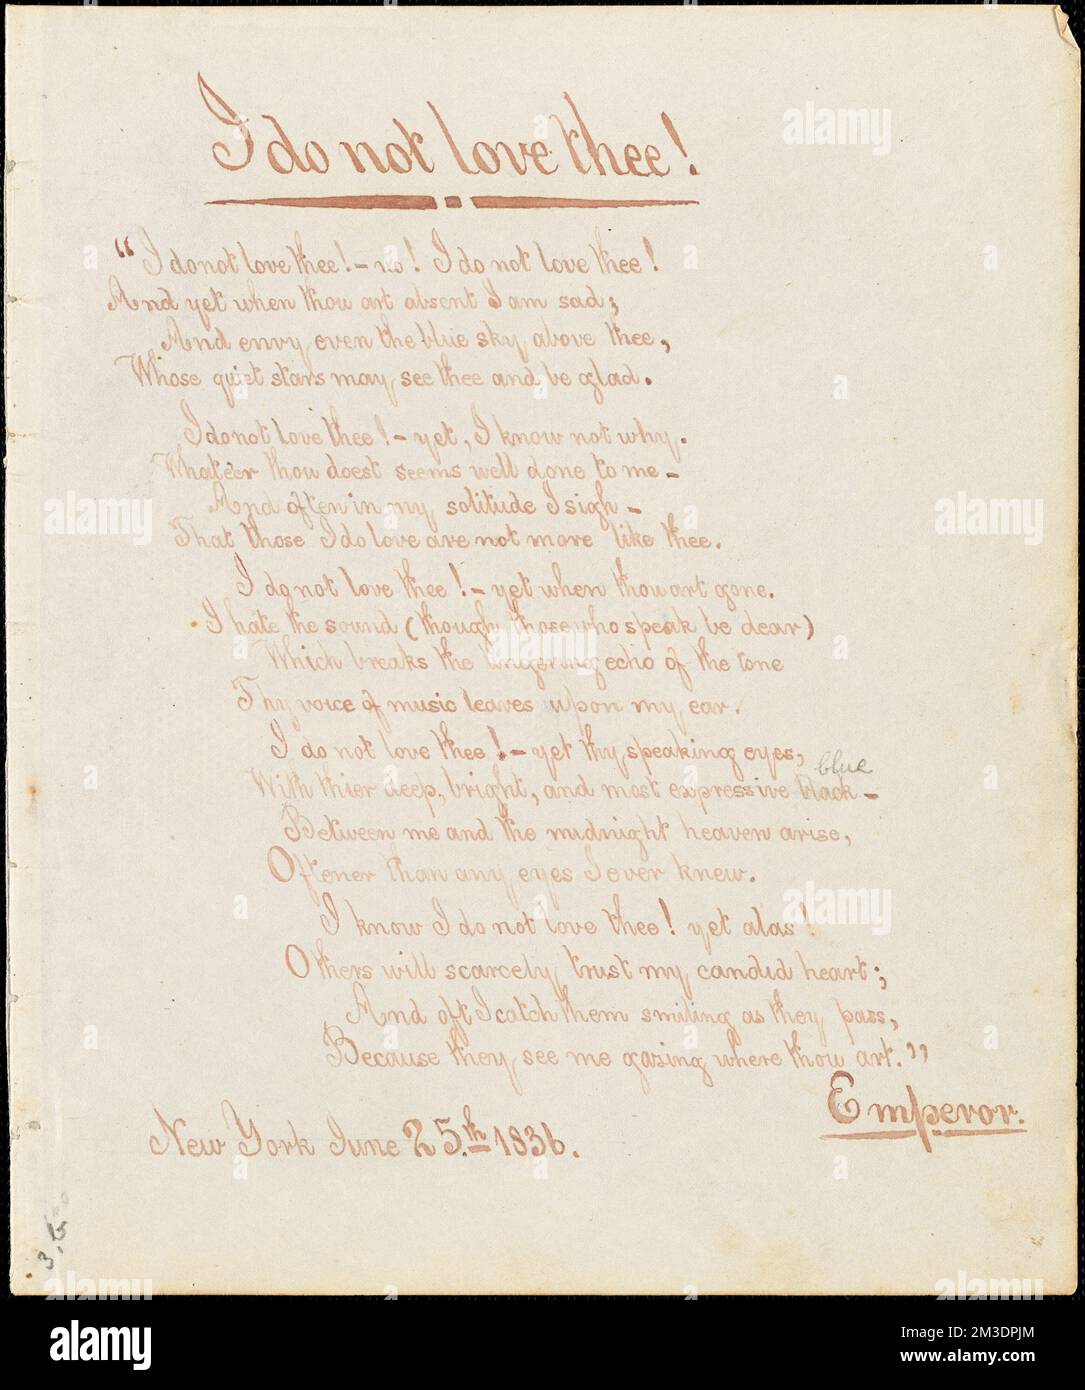 I do not love thee!
“I do not love thee! – no! I do not love thee!
And yet when thou art absent I am sad;
And envy even the blue sky above thee,
Whose quiet stars may see thee and be glad.
I do not love thee! – yet, I know not why.
Whate'er thou doest seems well done to me –
And often in my solitude I sigh –
That those I do love are not more like thee.
I do not love thee! – yet when thou art gone.
I hate the sound (though those who speak be dear)
Which breaks the lingering echo of the tone
Thy voice of music leaves upon my ear.
I do not love thee! – yet thy speaking eyes,
blue
With thier deep, bright, and most expressive black –
Between me and the midnight heaven arise,
Oftener than any eyes I ever knew.
I know I do not love thee! yet alas!
Others will scarcely trust my candid heart;
And oft I catch them smiling as they pass,
Because they see me gazing where thou art.”
Emperor.
New York June 25.th 1836.
alamy
Image ID: 2M3DPJM
www.alamy.com